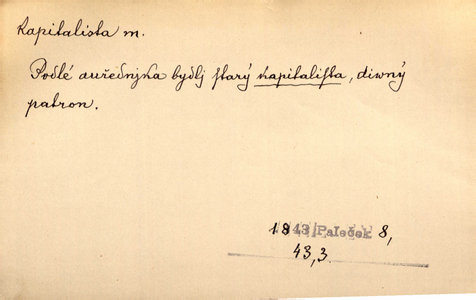 Kapitalista m.
Podlé auřednjka bydlj starý kapitalista, diwný
patron.
1843 Paleček 8,
43,3